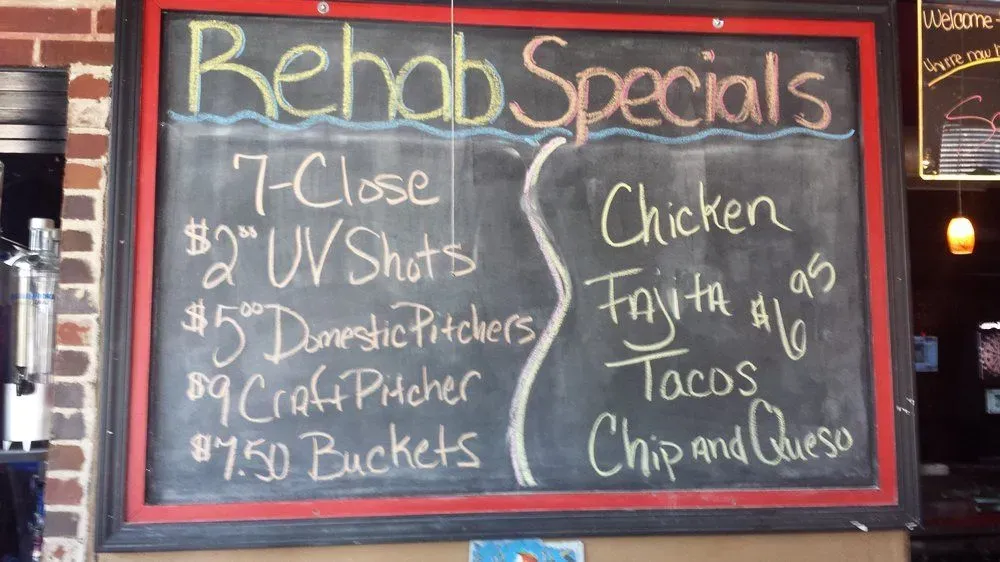 Rehab Specials
7-Close
$2.00 UV Shots
$5.00 Domestic Pitchers
$9 Craft Pitcher
$7.50 Buckets
Chicken
Fajita $6.95
Tacos
Chip and Queso
Welcome